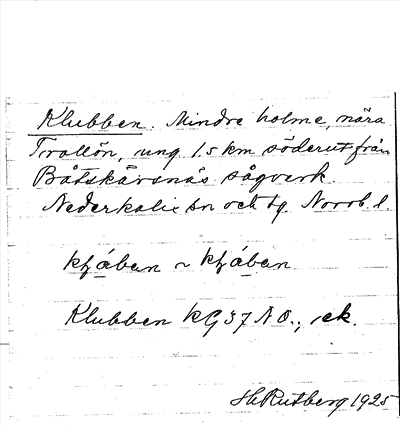 Klubben. Mindre holme, nära
Trollön, ung. 1.5 km söderut från
Båtskärsnäs sågverk.
Nederkalix sn och tg. Norrb. l.
Klubben kG 37 N O., ek.
H Rutberg 1925